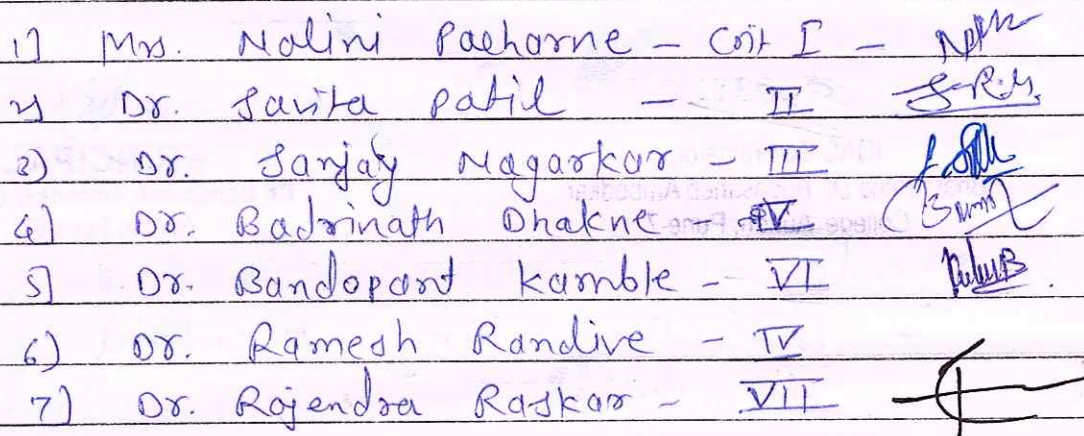 1] Mrs. Nalini Pacharne - Crit I -
2) Dr. Savita Patil - II
3) Dr. Sanjay Nagarkar - III
4) Dr. Badrinath Dhakne - V
5] Dr. Bandopant Kamble - VI
6) Dr. Ramesh Randive - IV
7] Dr. Rajendra Raskar - VII